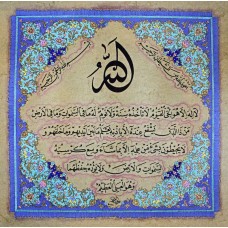 الله
لا إله إلا هو الحي القيوم لا تأخذه سنة ولا نوم له ما في السموات وما في الأرض
من ذا الذي يشفع عنده إلا بإذنه يعلم ما بين أيديهم وما خلفهم و
لا يحيطون بشيء من علمه إلا بما شاء وسع كرسيه
السموات والأرض ولا يؤده حفظهما
وهو العلي العظيم